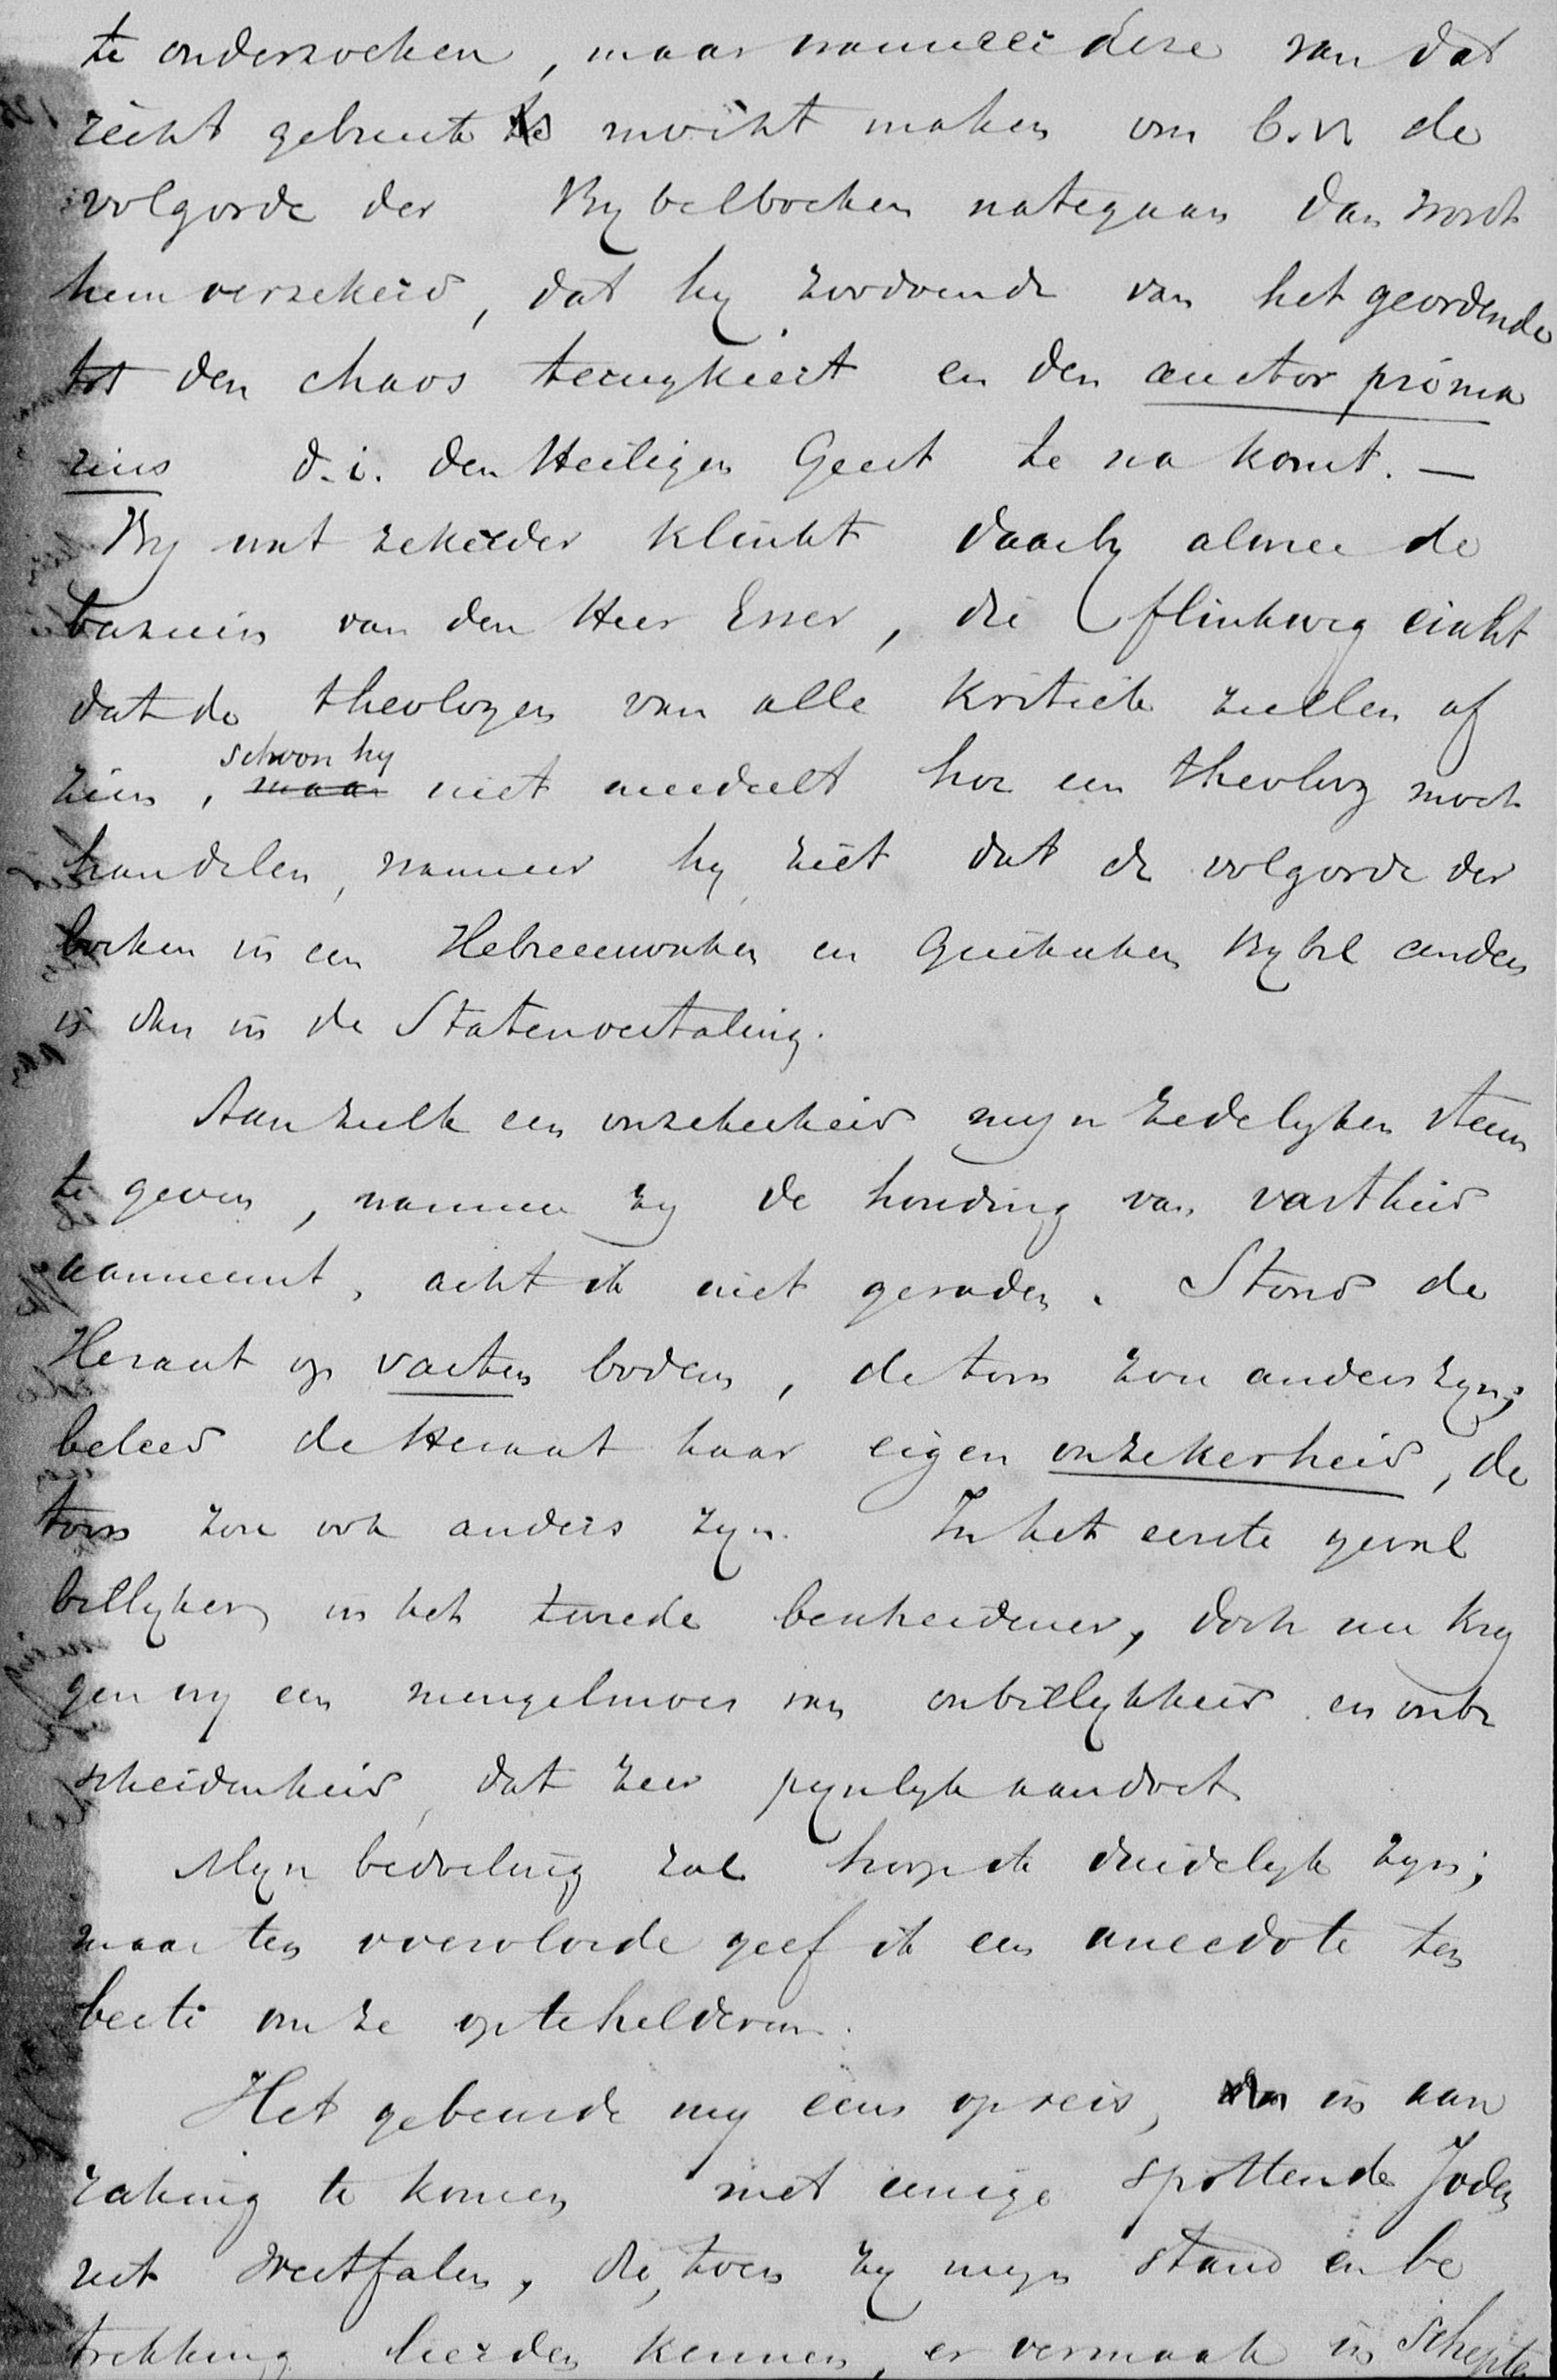 te onderzoeken, maar wanneer deze van dat
recht gebruik mocht maken om b.v. de
volgorde der Bybelboeken nategaan dan wordt
hem verzekerd, dat hy zoodoende van het geordende
tot den chaos terugkeert en den auctor prima
rius d.i. den Heiligen Geest te na komt. —
By uitstek helder klinkt daarby almee de
bazuin van den Heer Esser, die flinkweg eischt
dat de theologen van alle kritiek zullen af
zien, schoon hy niet meedeelt hoe een theoloog moet
handelen, wanneer hy ziet dat de volgorde der
boeken in een Hebreeuwschen en Griekschen Bybel anders
is dan in de Statenvertaling.
Aan zulk een onzekerheid myn zedelyken steun
te geven, wanneer zy de houding van vastheid
aanneemt, acht ik niet geraden. Stond de
Heraut op vasten bodem, de toon zou anders zyn;
beleed de Heraut haar eigen onzekerheid, de
toon zou ook anders zyn. In het eerste geval
billyker, in het tweede bescheidener, doch nu kry
gen wy een mengelmoes van onbillykheid en onbe
scheidenheid, dat zeer pynlyk aandoet
Myn bedoeling zal hoop ik duidelyk zyn;
maar ten overvloede geef ik een anecdote ten
beste om ze optehelderen.
Het gebeurde my eens op reis, in aan
raking te komen met eenige spottende Joden
uit Westfalen, die, toen zy myn stand en be
trekking leerden kennen, er vermaak in schepte